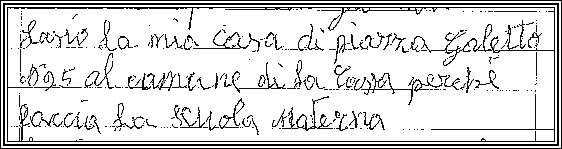 Lascio la mia casa di piazza Galetto
n° 25 al comune di La Cassa perchè
faccia la scuola Materna